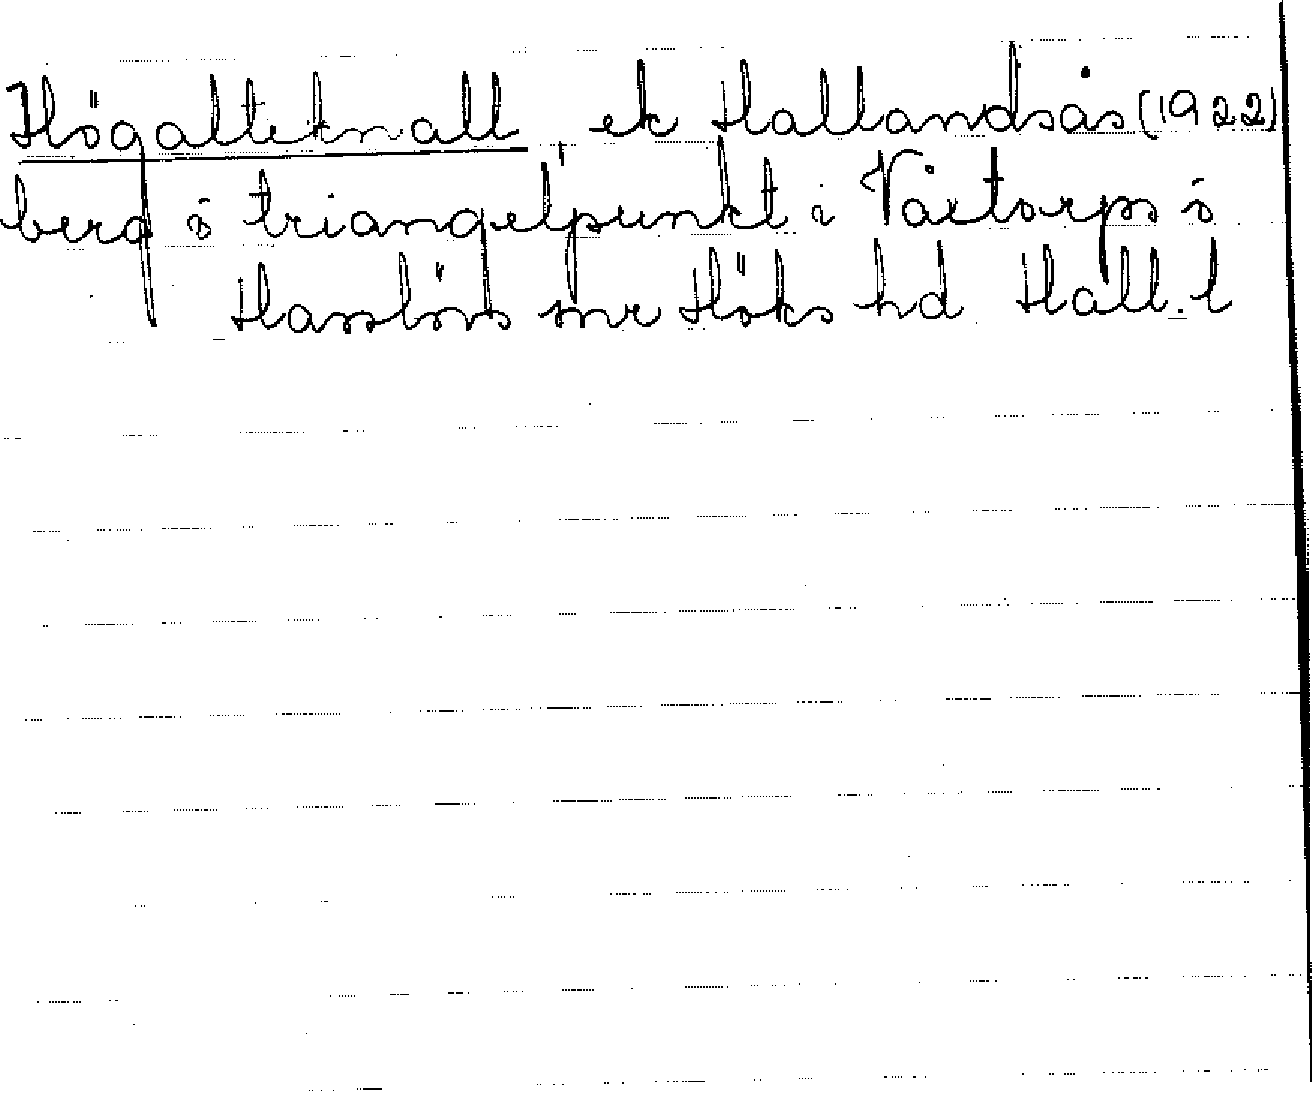 Högalteknall ek Hallandsås (1922)
berg o triangelpunkt i Våxtorps o
Hasslövs snr Höks hd Hall. l